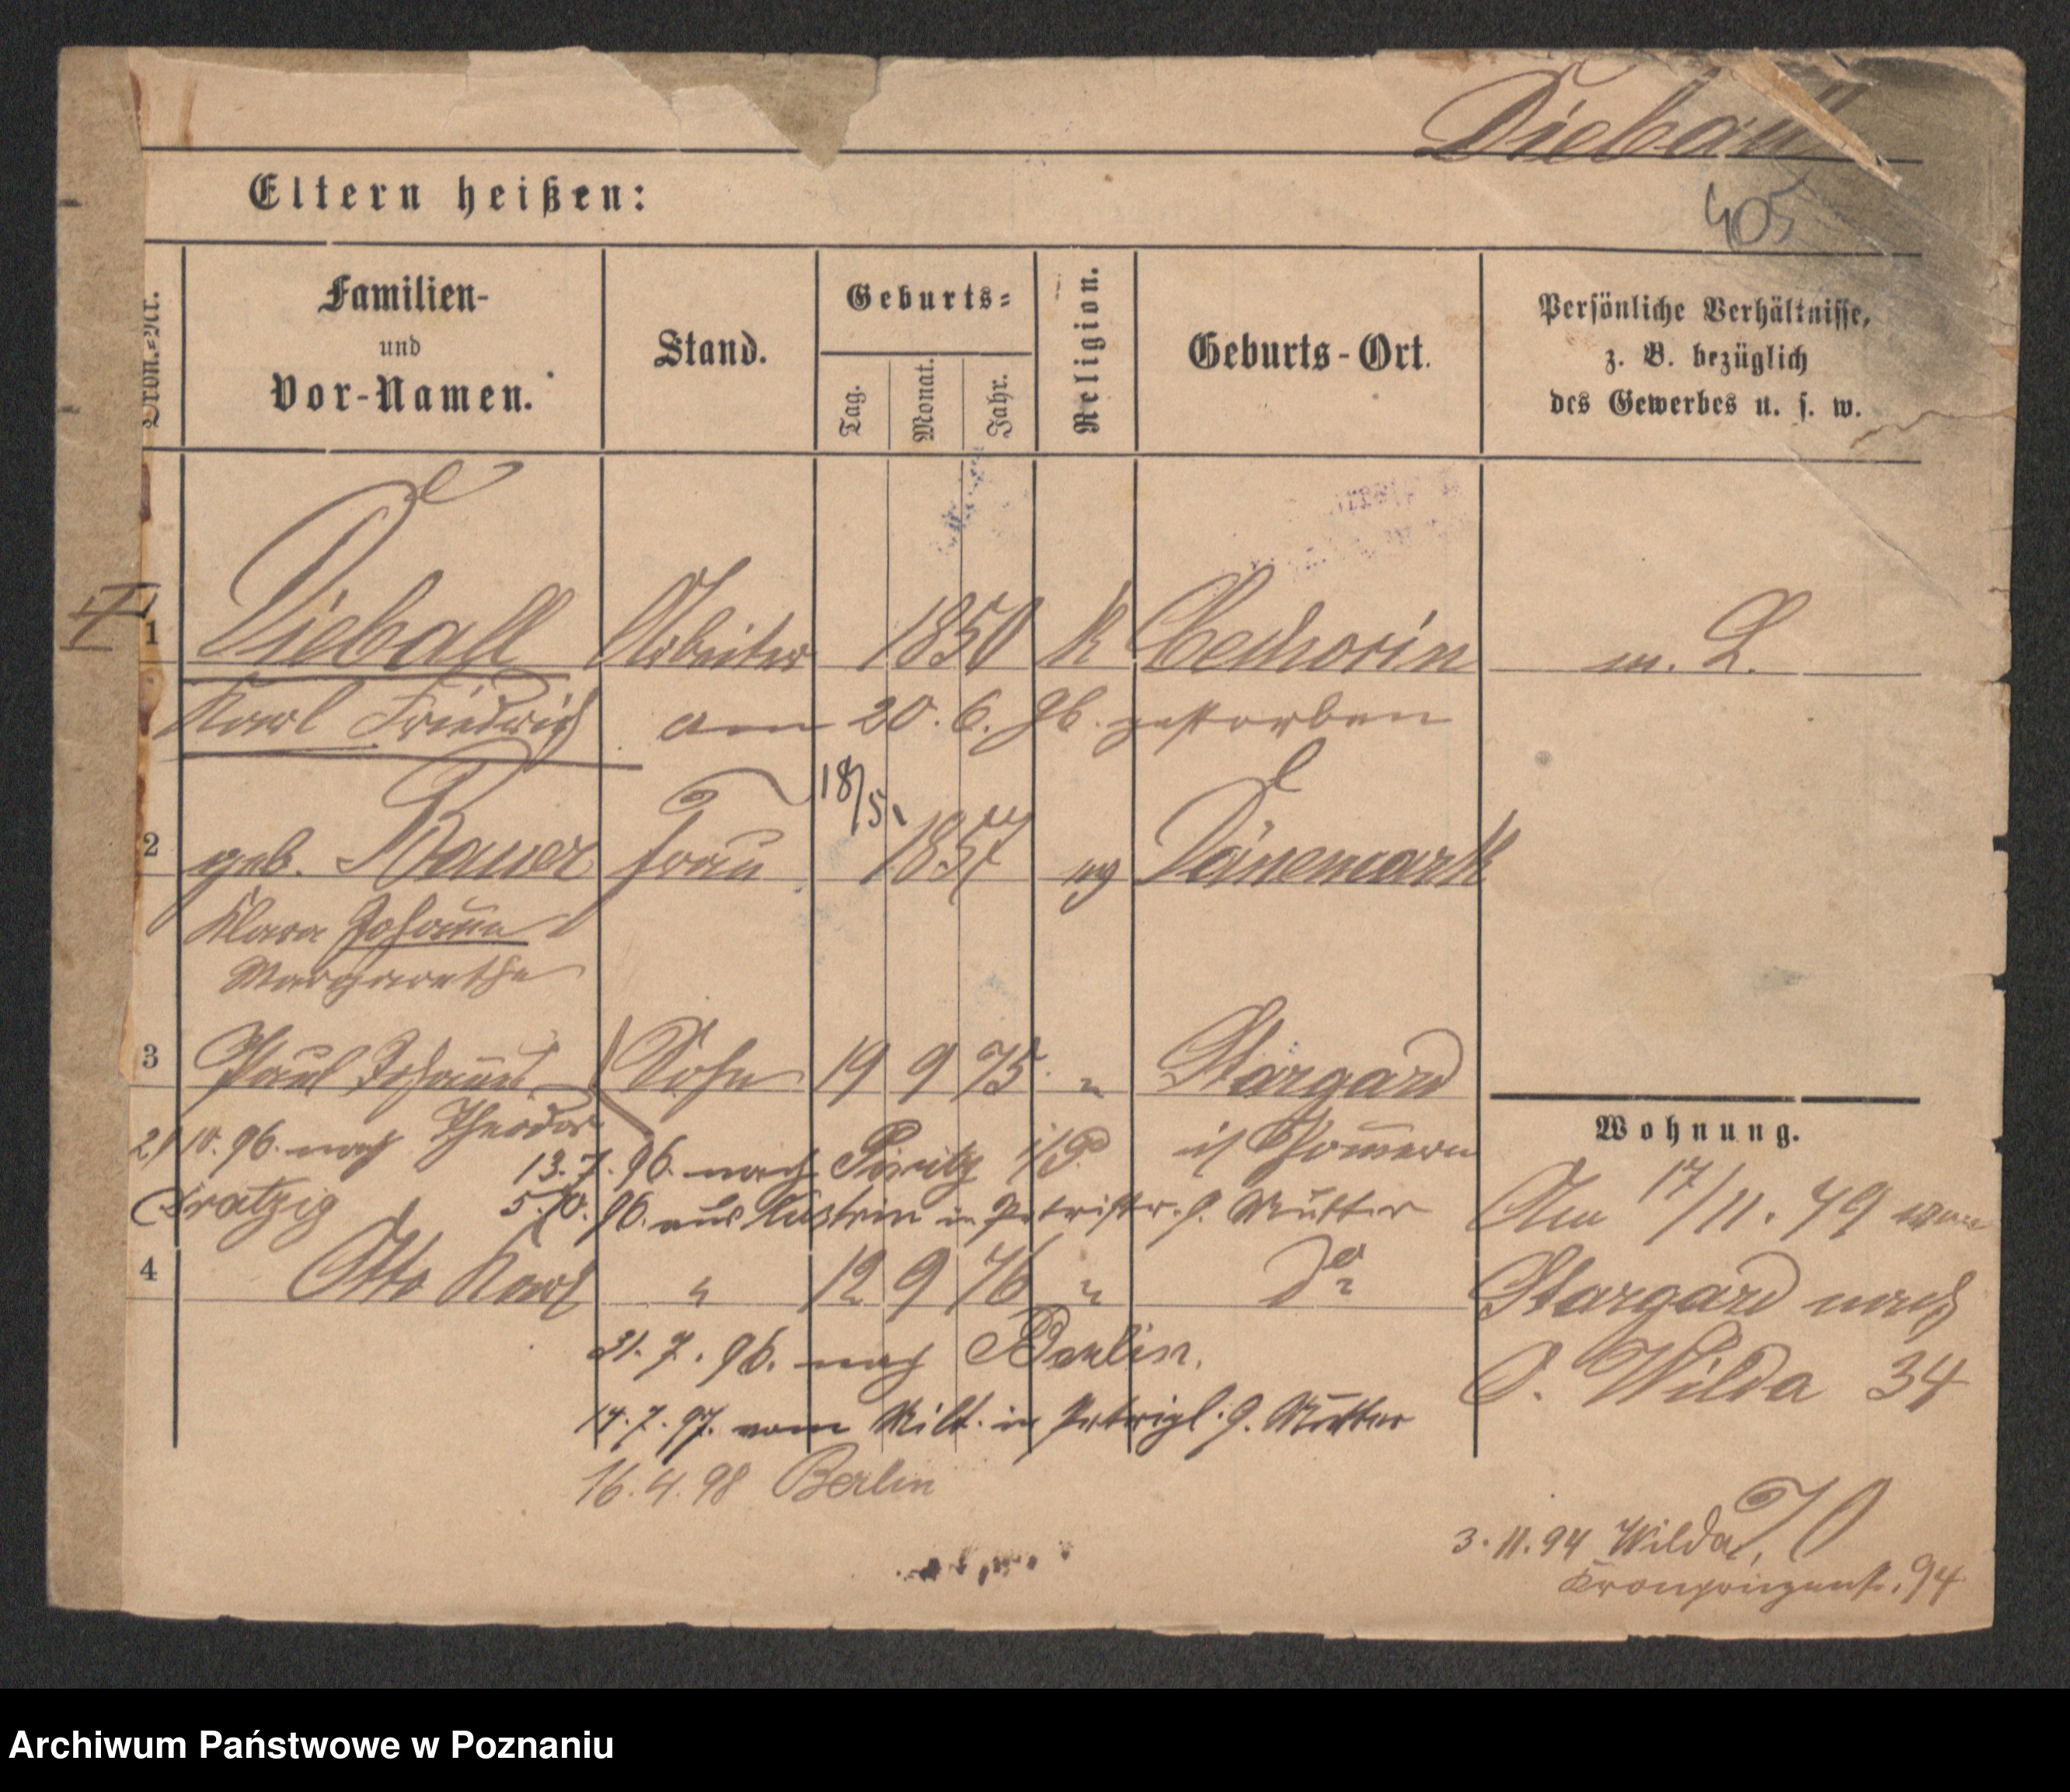 Diebali
405
Eltern heißen:
Kron.-Nr.
Familien-
und
Vor-Namen.
Stand.
Geburts-
Tag.
Monat.
Jahr.
Religion.
Geburts-Ort.
Persönliche Verhältnisse,
z. B. bezüglich
des Gewerbes u. s. w.
I
1 Dieball Arbeiter 1850 k m. L.
Karl Friedrich am 20. 6. 96. gestorben
18/5.
2 geb. Bauer Frau 1857 ev Dänemark
Klara Johanna
Margarethe
3 Paul Johannes Sohn 19 9 75 " Stargard
Theodor
i/ Pommern
21 10. 96. nach
13. 7. 96. nach i/P.
5. 10. 96. aus Küstrin in Petristr. 9. Mutter
4 Otto Karl " 12 9 76 " do
31. 7. 96. nach Berlin.
14. 7. 97. vom Milt. in Petripl. 9. Mutter
16. 4. 98 Berlin
Wohnung.
Am 17/11. 79 von
Stargard nach
O. Wilda 34
3. 11. 94 Wilda, 70
Kronprinzenst. 94
Archiwum Państwowe w Poznaniu